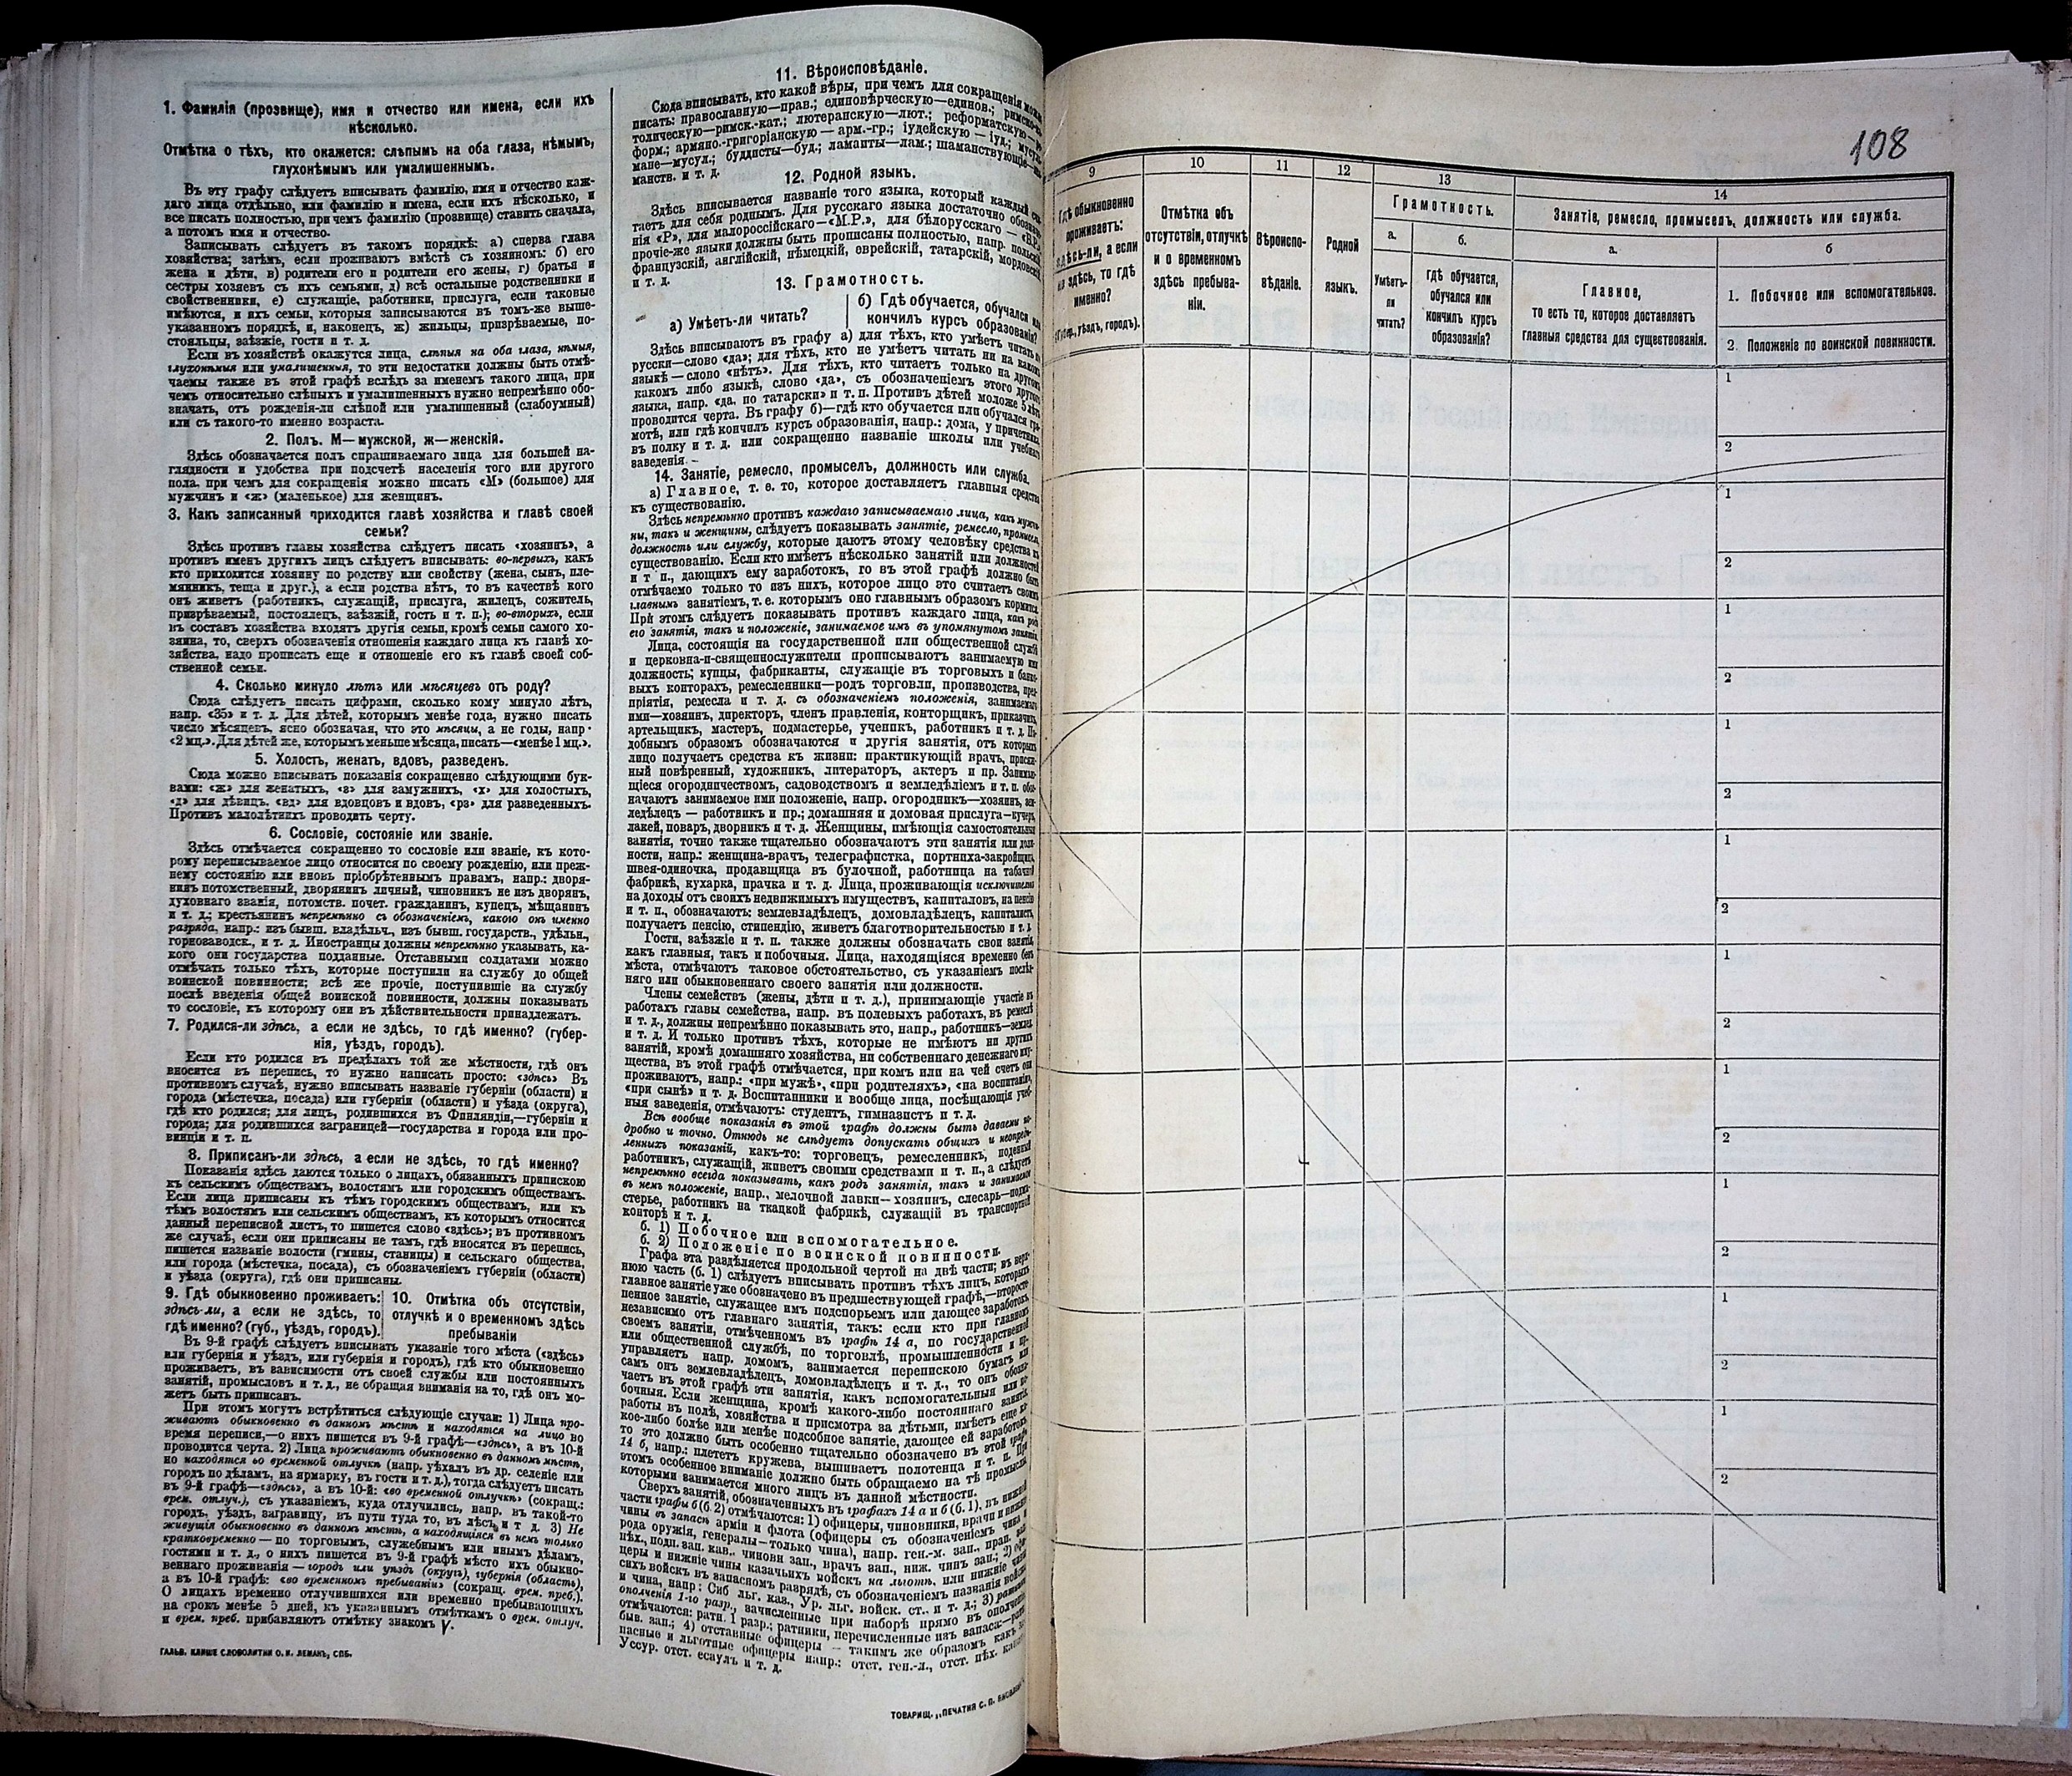 1. Фамилія (прозвище), имя и отчество или имена, если ихъ
нѣсколько.
Отмѣтка о тѣхъ, кто окажется: слѣпымъ на оба глаза, нѣмымъ,
глухонѣмымъ или умалишеннымъ.
Въ эту графу слѣдуетъ вписывать фамилію, имя и отчество каж-
даго лица отдѣльно, или фамилію и имена, если ихъ нѣсколько, и
все писать полностью, при чемъ фамилію (прозвище) ставить сначала,
а потомъ имя и отчество.
Записывать слѣдуетъ въ такомъ порядкѣ: а) сперва глава
хозяйства; затѣмъ, если проживаютъ вмѣстѣ съ хозяиномъ: б) его
жена и дѣти, в) родители его и родители его жены, г) братья и
сестры хозяевъ съ ихъ семьями, д) всѣ остальные родственники и
свойственники, е) служащіе, работники, прислуга, если таковые
имѣются, и ихъ семьи, которыя записываются въ томъ-же выше-
указанномъ порядкѣ, и, наконецъ, ж) жильцы, призрѣваемые, по-
стояльцы, заѣзжіе, гости и т. д.
Если въ хозяйствѣ окажутся лица, слѣпыя на оба глаза, нѣмыя,
глухонѣмыя или умалишенныя, то эти недостатки должны быть отмѣ-
чаемы также въ этой графѣ вслѣдъ за именемъ такого лица, при
чемъ относительно слѣпыхъ и умалишенныхъ нужно непремѣнно обо-
значать, отъ рожденія-ли слѣпой или умалишенный (слабоумный)
или съ такого-то именно возраста.
2. Полъ. М—мужской, ж—женскій.
Здѣсь обозначается полъ спрашиваемаго лица для большей на-
глядности и удобства при подсчетѣ населенія того или другого
пола, при чемъ для сокращенія можно писать «М» (большое) для
мужчинъ и «ж» (маленькое) для женщинъ.
3. Какъ записанный приходится главѣ хозяйства и главѣ своей
семьи?
Здѣсь противъ главы хозяйства слѣдуетъ писать «хозяинъ», а
противъ именъ другихъ лицъ слѣдуетъ вписывать: во-первыхъ, какъ
кто приходится хозяину по родству или свойству (жена, сынъ, пле-
мянникъ, теща и друг.), а если родства нѣтъ, то въ качествѣ кого
онъ живетъ (работникъ, служащій, прислуга, жилецъ, сожитель,
призрѣваемый, постоялецъ, заѣзжій, гость и т. п.); во-вторыхъ, если
въ составъ хозяйства входятъ другія семьи, кромѣ семьи самого хо-
зяина, то, сверхъ обозначенія отношенія каждаго лица къ главѣ хо-
зяйства, надо прописать еще и отношеніе его къ главѣ своей соб-
ственной семьи.
4. Сколько минуло лѣтъ или мѣсяцевъ отъ роду?
Сюда слѣдуетъ писать цифрами, сколько кому минуло лѣтъ,
напр. «35» и т. д. Для дѣтей, которымъ менѣе года, нужно писать
число мѣсяцевъ, ясно обозначая, что это мѣсяцы, а не годы, напр.
«2 мц.». Для дѣтей же, которымъ меньше мѣсяца, писать—«менѣе 1 мц.».
5. Холостъ, женатъ, вдовъ, разведенъ.
Сюда можно вписывать показанія сокращенно слѣдующими бук-
вами: «ж» для женатыхъ, «з» для замужнихъ, «х» для холостыхъ,
«д» для дѣвицъ, «вд» для вдовцовъ и вдовъ, «рз» для разведенныхъ.
Противъ малолѣтнихъ проводить черту.
6. Сословіе, состояніе или званіе.
Здѣсь отмѣчается сокращенно то сословіе или званіе, къ кото-
рому переписываемое лицо относится по своему рожденію, или преж-
нему состоянію или вновь пріобрѣтеннымъ правамъ, напр.: дворя-
нинъ потомственный, дворянинъ личный, чиновникъ не изъ дворянъ,
духовнаго званія, потомств. почет. гражданинъ, купецъ, мѣщанинъ
и т. д.; крестьянинъ непремѣнно съ обозначеніемъ, какого онъ именно
разряда, напр.: изъ бывш. владѣльч., изъ бывш. государств., удѣльн.,
горнозаводск., и т. д. Иностранцы должны непремѣнно указывать, ка-
кого они государства подданные. Отставными солдатами можно
отмѣчать только тѣхъ, которые поступили на службу до общей
воинской повинности; всѣ же прочіе, поступившіе на службу
послѣ введенія общей воинской повинности, должны показывать
то сословіе, къ которому они въ дѣйствительности принадлежатъ.
7. Родился-ли здѣсь, а если не здѣсь, то гдѣ именно? (губер-
нія, уѣздъ, городъ).
Если кто родился въ предѣлахъ той же мѣстности, гдѣ онъ
вносится въ перепись, то нужно написать просто: «здѣсь» Въ
противномъ случаѣ, нужно вписывать названіе губерніи (области) и
города (мѣстечка, посада) или губерніи (области) и уѣзда (округа),
гдѣ кто родился; для лицъ, родившихся въ Финляндіи,—губерніи и
города; для родившихся заграницей—государства и города или про-
винціи и т. п.
8. Приписанъ-ли здѣсь, а если не здѣсь, то гдѣ именно?
Показанія здѣсь даются только о лицахъ, обязанныхъ припискою
къ сельскимъ обществамъ, волостямъ или городскимъ обществамъ.
Если лица приписаны къ тѣмъ городскимъ обществамъ, или къ
тѣмъ волостямъ или сельскимъ обществамъ, къ которымъ относится
данный переписной листъ, то пишется слово «здѣсь»; въ противномъ
же случаѣ, если они приписаны не тамъ, гдѣ вносятся въ перепись,
пишется названіе волости (гмины, станицы) и сельскаго общества,
или города (мѣстечка, посада), съ обозначеніемъ губерніи (области)
и уѣзда (округа), гдѣ они приписаны.
9. Гдѣ обыкновенно проживаетъ:
здѣсь-ли, а если не здѣсь, то
гдѣ именно? (губ., уѣздъ, городъ).
10. Отмѣтка объ отсутствіи,
отлучкѣ и о временномъ здѣсь
пребываніи
Въ 9-й графѣ слѣдуетъ вписывать указаніе того мѣста («здѣсь»
или губернія и уѣздъ, или губернія и городъ), гдѣ кто обыкновенно
проживаетъ, въ зависимости отъ своей службы или постоянныхъ
занятій, промысловъ и т. д., не обращая вниманія на то, гдѣ онъ мо-
жетъ быть приписанъ.
При этомъ могутъ встрѣтиться слѣдующіе случаи: 1) Лица про-
живаютъ обыкновенно въ данномъ мѣстѣ и находятся на лицо во
время переписи,—о нихъ пишется въ 9-й графѣ—«здѣсь», а въ 10-й
проводится черта. 2) Лица проживаютъ обыкновенно въ данномъ мѣстѣ,
но находятся во временной отлучкѣ (напр. уѣхалъ въ др. селеніе или
городъ по дѣламъ, на ярмарку, въ гости и т. д.), тогда слѣдуетъ писать
въ 9-й графѣ—«здѣсь», а въ 10-й: «во временной отлучкѣ» (сокращ.:
врем. отлуч.), съ указаніемъ, куда отлучились, напр. въ такой-то
городъ, уѣздъ, заграницу, въ пути туда то, въ лѣсъ и т д. 3) Не
живущія обыкновенно въ данномъ мѣстѣ, а находящіяся въ немъ только
кратковременно — по торговымъ, служебнымъ или инымъ дѣламъ,
гостями и т. д., о нихъ пишется въ 9-й графѣ мѣсто ихъ обыкно-
веннаго проживанія — городъ или уѣздъ (округъ), губернія (область),
а въ 10-й графѣ: «во временномъ пребываніи» (сокращ. врем. преб.).
О лицахъ временно отлучившихся или временно пребывающихъ
на срокъ менѣе 5 дней, къ указаннымъ отмѣткамъ о врем. отлуч.
и врем. преб. прибавляютъ отмѣтку знакомъ V.
ГАЛЬВ. КЛИШЕ СЛОВОЛИТНИ О. И. ЛЕМАНЪ, СПБ.
11. Вѣроисповѣданіе.
Сюда вписывать, кто какой вѣры, при чемъ для сокращенія можно
писать: православную—прав.; единовѣрческую—единов.; римско-ка-
толическую—римск.-кат.; лютеранскую—лют.; реформатскую—
форм.; армяно.-григоріанскую — арм.-гр.; іудейскую — іуд.; мусуль-
мане—мусул.; буддисты—буд.; ламаиты—лам.; шаманствующіе—
манств. и т. д.
12. Родной языкъ.
Здѣсь вписывается названіе того языка, который каждый счи-
таетъ для себя роднымъ. Для русскаго языка достаточно обозначе-
нія «Р», для малороссійскаго—«М.Р.», для бѣлорусскаго — «Б.Р.»
прочіе-же языки должны быть прописаны полностью, напр. польскій
французскій, англійскій, нѣмецкій, еврейскій, татарскій, мордовскій
и т. д.
13. Грамотность.
а) Умѣетъ-ли читать?
б) Гдѣ обучается, обучался или
кончилъ курсъ образованія?
Здѣсь вписываютъ въ графу а) для тѣхъ, кто умѣетъ читать по
русски—слово «да»; для тѣхъ, кто не умѣетъ читать ни на какомъ
языкѣ — слово «нѣтъ». Для тѣхъ, кто читаетъ только на другомъ
какомъ либо языкѣ, слово «да», съ обозначеніемъ этого другого
языка, напр. «да, по татарски» и т. п. Противъ дѣтей моложе 5 лѣтъ
проводится черта. Въ графу б)—гдѣ кто обучается или обучался гра-
мотѣ, или гдѣ кончилъ курсъ образованія, напр.: дома, у причетника,
въ полку и т. д. или сокращенно названіе школы или учебнаго
заведенія. –
14. Занятіе, ремесло, промыселъ, должность или служба.
а) Главное, т. е. то, которое доставляетъ главныя средства
къ существованію.
Здѣсь непремѣнно противъ каждаго записываемаго лица, какъ мужчи-
ны, такъ и женщины, слѣдуетъ показывать занятіе, ремесло, промыселъ,
должность или службу, которые даютъ этому человѣку средства къ
существованію. Если кто имѣетъ нѣсколько занятій или должностей
и т п., дающихъ ему заработокъ, то въ этой графѣ должно быть
отмѣчаемо только то изъ нихъ, которое лицо это считаетъ своимъ
главнымъ занятіемъ, т. е. которымъ оно главнымъ образомъ кормится.
При этомъ слѣдуетъ показывать противъ каждаго лица, какъ родъ
его занятія, такъ и положеніе, занимаемое имъ въ упомянутомъ занятіи.
Лица, состоящія на государственной или общественной службѣ
и церковно-и-священнослужители прописываютъ занимаемую ими
должность; купцы, фабриканты, служащіе въ торговыхъ и банко-
выхъ конторахъ, ремесленники—родъ торговли, производства, пред-
пріятія, ремесла и т. д. съ обозначеніемъ положенія, занимаемаго
ими—хозяинъ, директоръ, членъ правленія, конторщикъ, приказчикъ,
артельщикъ, мастеръ, подмастерье, ученикъ, работникъ и т. д. По-
добнымъ образомъ обозначаются и другія занятія, отъ которыхъ
лицо получаетъ средства къ жизни: практикующій врачъ, присяж-
ный повѣренный, художникъ, литераторъ, актеръ и пр. Занимаю-
щіеся огородничествомъ, садоводствомъ и земледѣліемъ и т. п. обоз-
начаютъ занимаемое ими положеніе, напр. огородникъ—хозяинъ, зем-
ледѣлецъ — работникъ и пр.; домашняя и домовая прислуга—кучеръ,
лакей, поваръ, дворникъ и т. д. Женщины, имѣющія самостоятельныя
занятія, точно также тщательно обозначаютъ эти занятія или долж-
ности, напр.: женщина-врачъ, телеграфистка, портниха-закройщица,
швея-одиночка, продавщица въ булочной, работница на табачной
фабрикѣ, кухарка, прачка и т. д. Лица, проживающія исключительно
на доходы отъ своихъ недвижимыхъ имуществъ, капиталовъ, на пенсію
и т. п., обозначаютъ: землевладѣлецъ, домовладѣлецъ, капиталистъ,
получаетъ пенсію, стипендію, живетъ благотворительностью и т. д.
Гости, заѣзжіе и т. п. также должны обозначать свои занятія,
какъ главныя, такъ и побочныя. Лица, находящіяся временно безъ
мѣста, отмѣчаютъ таковое обстоятельство, съ указаніемъ послѣд-
няго или обыкновеннаго своего занятія или должности.
Члены семействъ (жены, дѣти и т. д.), принимающіе участіе въ
работахъ главы семейства, напр. въ полевыхъ работахъ, въ ремеслѣ
и т. д., должны непремѣнно показывать это, напр., работникъ—землед.
и т. д. И только противъ тѣхъ, которые не имѣютъ ни другихъ
занятій, кромѣ домашняго хозяйства, ни собственнаго денежнаго иму-
щества, въ этой графѣ отмѣчается, при комъ или на чей счетъ они
проживаютъ, напр.: «при мужѣ», «при родителяхъ», «на воспитаніи»,
«при сынѣ» и т. д. Воспитанники и вообще лица, посѣщающія учеб-
ныя заведенія, отмѣчаютъ: студентъ, гимназистъ и т. д.
Всѣ вообще показанія въ этой графѣ должны быть даваемы по-
дробно и точно. Отнюдь не слѣдуетъ допускать общихъ и неопредѣ-
ленныхъ показаній, какъ-то: торговецъ, ремесленникъ, поденный
работникъ, служащій, живетъ своими средствами и т. п., а слѣдуетъ
непремѣнно всегда показывать, какъ родъ занятія, такъ и занимаемое
въ немъ положеніе, напр., мелочной лавки—хозяинъ, слесарь—подма-
стерье, работникъ на ткацкой фабрикѣ, служащій въ транспортной
конторѣ и т. д.
б. 1) Побочное или вспомогательное.
б. 2) Положеніе по воинской повинности.
Графа эта раздѣляется продольной чертой на двѣ части; въ верх-
нюю часть (б. 1) слѣдуетъ вписывать противъ тѣхъ лицъ, которыхъ
главное занятіе уже обозначено въ предшествующей графѣ,—второсте-
пенное занятіе, служащее имъ подспорьемъ или дающее заработокъ,
независимо отъ главнаго занятія, такъ: если кто при главномъ
своемъ занятіи, отмѣченномъ въ графѣ 14 а, по государственной
или общественной службѣ, по торговлѣ, промышленности и пр.
управляетъ напр. домомъ, занимается перепискою бумагъ или
самъ онъ землевладѣлецъ, домовладѣлецъ и т. д., то онъ обозна-
чаетъ въ этой графѣ эти занятія, какъ вспомогательныя или по-
бочныя. Если женщина, кромѣ какого-либо постояннаго занятія,
работы въ полѣ, хозяйства и присмотра за дѣтьми, имѣетъ еще ка-
кое-либо болѣе или менѣе подсобное занятіе, дающее ей заработокъ,
то это должно быть особенно тщательно обозначено въ этой графѣ
14 б, напр.: плететъ кружева, вышиваетъ полотенца и т. п. При
этомъ особенное вниманіе должно быть обращаемо на тѣ промыслы,
которыми занимается много лицъ въ данной мѣстности.
Сверхъ занятій, обозначенныхъ въ графахъ 14 а и б (б. 1), въ нижней
части графы б (б. 2) отмѣчаются: 1) офицеры, чиновники, врачи и нижніе
чины въ запасѣ арміи и флота (офицеры съ обозначеніемъ чина и
рода оружія, генералы—только чина), напр. ген.-м. зап., прап. зап.
пѣх., подп. зап. кав., чиновн зап., врачъ зап., ниж. чинъ зап.; 2) офи-
церы и нижніе чины казачьихъ войскъ на льготѣ, или нижніе чины
сихъ войскъ въ запасномъ разрядѣ, съ обозначеніемъ названія войска
и чина, напр: Сиб льг. каз., Ур. льг. войск. ст. и т. д.; 3) ратники
ополченія 1-го разр., зачисленные при наборѣ прямо въ ополченіе
отмѣчаются: ратн. 1 разр.; ратники, перечисленные изъ запаса:—ратн.
быв. зап.; 4) отставные офицеры — такимъ же образомъ какъ за-
пасные и льготные офицеры напр.: отст. ген.-л., отст. пѣх. капит.
Уссур. отст. есаулъ и т. д.
ТОВАРИЩ. „ПЕЧАТНЯ С. П.
108
9
10
11
12
13
14
Гдѣ обыкновенно
проживаетъ:
здѣсь-ли, а если
не здѣсь, то гдѣ
именно?
(Губер., уѣздъ, городъ).
Отмѣтка объ
отсутствіи, отлучкѣ
и о временномъ
здѣсь пребыва-
ніи.
Вѣроиспо-
вѣданіе.
Родной
языкъ.
Грамотность.
а.
Умѣетъ-
ли
читать?
б.
Гдѣ обучается,
обучался или
кончилъ курсъ
образованія?
Занятіе, ремесло, промыселъ, должность или служба.
а.
Главное,
то есть то, которое доставляетъ
главныя средства для существованія.
б
1. Побочное или вспомогательное.
2. Положеніе по воинской повинности.
1
2
1
2
1
2
1
2
1
2
1
2
1
2
1
2
1
2
1
2